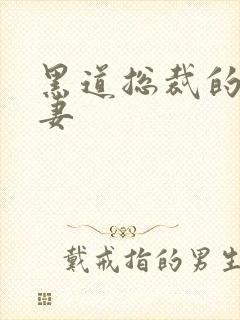 黑道总裁的
妻
戴戒指的男生